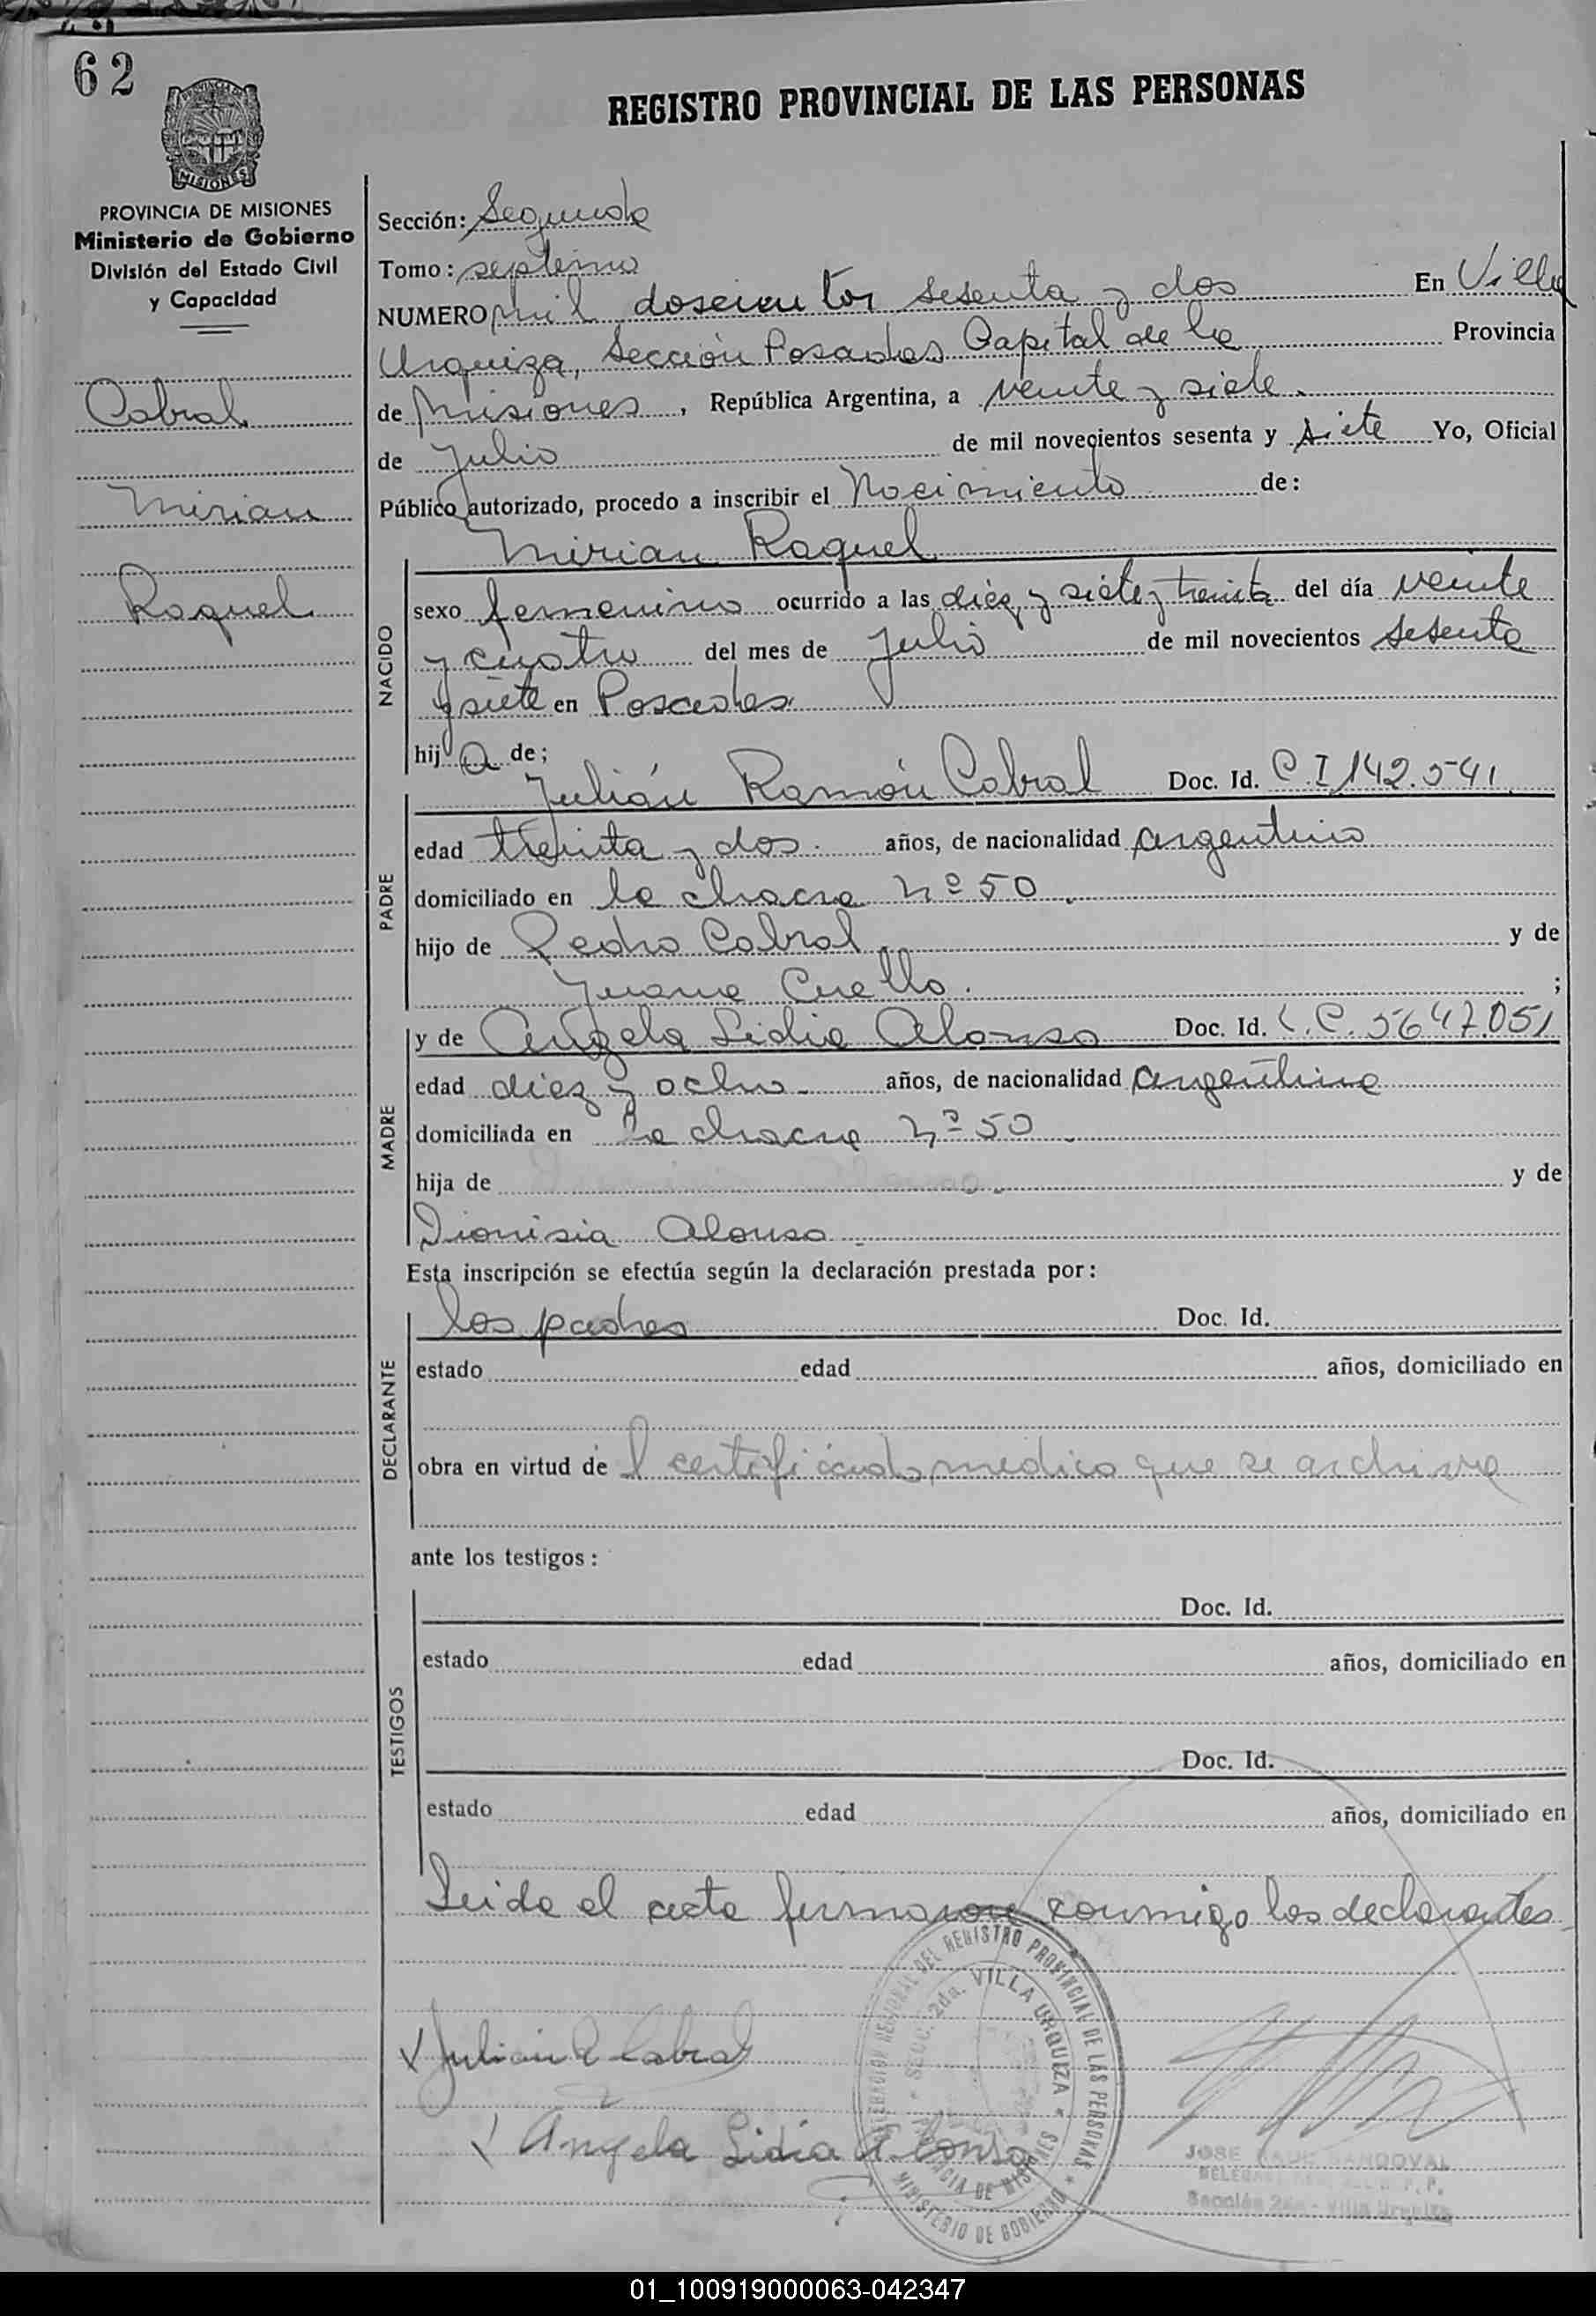 62
REGISTRO PROVINCIAL DE LAS PERSONAS
MISIONES
PROVINCIA DE MISIONES
Ministerio de Gobierno
División del Estado Civil
y Capacidad
Cabral
Mirian
Raquel
Sección: Segunda
Tomo: septimo
NUMERO mil doscientos sesenta y dos En Villa
Urquiza, Sección Posadas Capital de la Provincia
de Misiones, República Argentina, a veinte y siete
de Julio de mil novecientos sesenta y siete Yo, Oficial
Público autorizado, procedo a inscribir el Nacimiento de:
Mirian Raquel
NACIDO
sexo femenino ocurrido a las diez y siete y treinta del día veinte
y cuatro del mes de Julio de mil novecientos sesenta
y siete en Posadas
hij a de;
Julián Ramón Cabral Doc. Id. C.I 142.541
PADRE
edad treinta y dos años, de nacionalidad argentino
domiciliado en la chacra nº 50
hijo de Pedro Cabral y de
Juana Cuello. ;
y de Angela Lidia Alonso Doc. Id. L.C. 5647.051
MADRE
edad diez y ocho años, de nacionalidad argentina
domiciliada en la chacra nº 50
hija de y de
Dionisia Alonso
Esta inscripción se efectúa según la declaración prestada por:
los padres Doc. Id.
DECLARANTE
estado edad años, domiciliado en
obra en virtud de l certificado medico que se archiva
ante los testigos:
Doc. Id.
TESTIGOS
estado edad años, domiciliado en
Doc. Id.
estado edad años, domiciliado en
Leida el acta firmaron conmigo los declarantes
DELEGACION REGIONAL DEL REGISTRO PROVINCIAL DE LAS PERSONAS
SECC. 2da. VILLA URQUIZA
PROVINCIA DE MISIONES
MINISTERIO DE GOBIERNO
Julian R Cabral
Angela Lidia Alonso
JOSE RAUL SANDOVAL
Sección 2da - Villa Urquiza
01_100919000063-042347